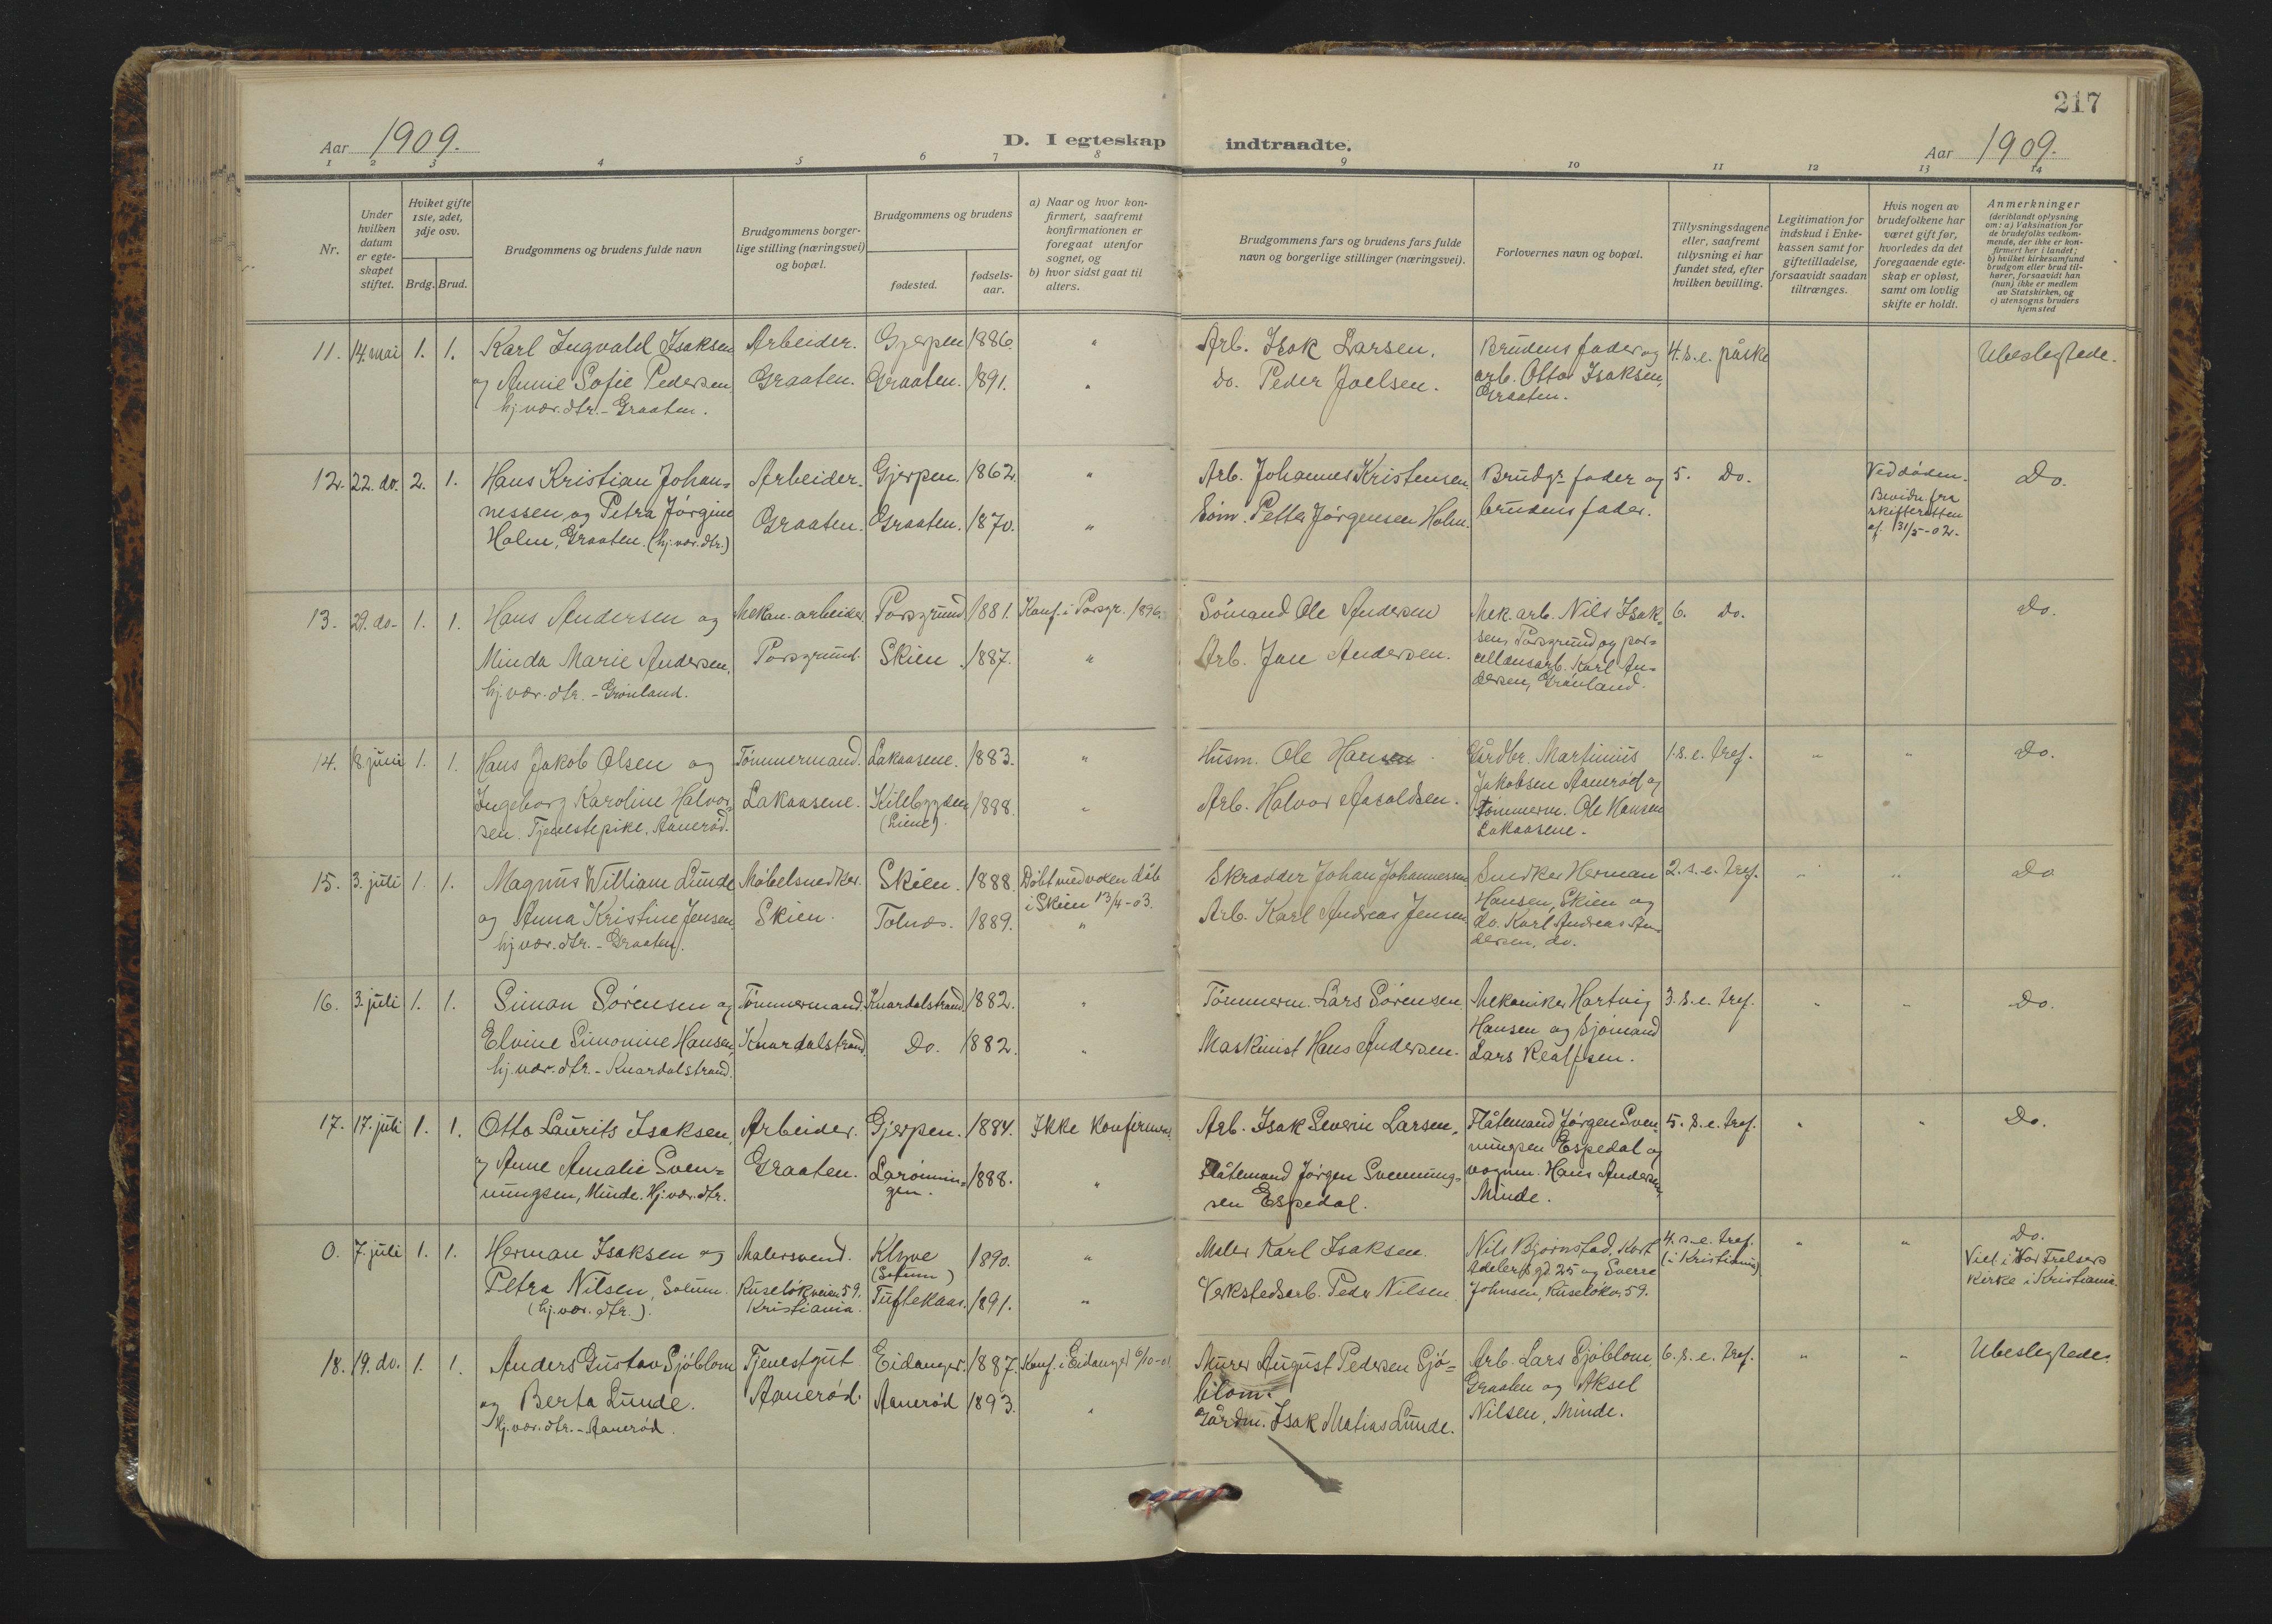 217
Aar 1909.
D. I egteskap indtraadte.
Aar 1909.
1 2 3 4 5 6 7 8 9 10 11 12 13 14
Nr.
Under
hvilken
datum
er egte-
skapet
stiftet.
Hviket gifte
1ste, 2det,
3dje osv.
Brdg. Brud.
Brudgommens og brudens fulde navn
Brudgommens borger-
lige stilling (næringsvei)
og bopæl.
Brudgommens og brudens
fødested.
fødsels-
aar.
a) Naar og hvor kon-
firmert, saafremt
konfirmationen er
foregaat utenfor
sognet, og
b) hvor sidst gaat til
alters.
Brudgommens fars og brudens fars fulde
navn og borgerlige stillinger (næringsvei).
Forlovernes navn og bopæl.
Tillysningsdagene
eller, saafremt
tillysning ei har
fundet sted, efter
hvilken bevilling.
Legitimation for
indskud i Enke-
kassen samt for
giftetilladelse,
forsaavidt saadan
tiltrænges.
Hvis nogen av
brudefolkene har
været gift før,
hvorledes da det
foregaaende egte-
skap er opløst,
samt om lovlig
skifte er holdt.
Anmerkninger
(deriblandt oplysning
om: a) Vaksination for
de brudefolks vedkom-
mende, der ikke er kon-
firmert her i landet;
b) hvilket kirkesamfund
brudgom eller brud til-
hører, forsaavidt han
(hun) ikke er medlem
av Statskirken, og
c) utensogns bruders
hjemsted
11. 14. mai 1. 1.
Karl Ingvald Isaksen
og Annie Sofie Pedersen,
hj. vær. dtr. - Graaten.
Arbeider.
Graaten.
Gjerpen 1886. "
Graaten. 1891. "
Arb. Isak Larsen.
do. Peder Joelsen.
Brudens fader og
arb. Otto Isaksen,
Graaten.
4. s. e. påske
Ubeslegtede.
12. 22. do. 2. 1.
Hans Kristian Johan-
nessen, og Petra Jørgine
Holm, Graaten. (hj. vær. dtr.)
Arbeider.
Graaten.
Gjerpen. 1862. "
Graaten. 1870. "
Arb. Johannes Kristensen.
Petter Jørgensen Holm.
Brudgs fader og
brudens fader.
5. Do.
Ved døden.
Bevidn. fra
skifteretten
af 31/5-02.
Do.
13. 29. do. 1. 1.
Hans Andersen og
Minda Marie Andersen,
hj. vær. dtr. - Grønland.
Mekan. arbeider
Porsgrund.
Porsgrund 1881. Konf. i Porsgr. 1896.
Skien. 1887. "
Sømand Ole Andersen
Arb. Jan Andersen.
Mek. arb. Nils Isak-
sen, Porsgrund og por-
cellænsarb. Karl An-
dersen, Grønland.
6. Do.
Do.
14. 18. juni 1. 1.
Hans Jakob Olsen og
Ingeborg Karoline Halvor-
sen. Tjenestepike, Aanerød.
Tømmermand.
Lakaasene.
Lakaasene. 1883. "
Kilebygden 1888. "
Husm. Ole Hansen.
Arb. Halvor Aasoldsen.
Gårdbr. Martinius
Jakobsen Aanerød og
Tømmerm. Ole Hansen
Lakaasene.
1. s. e. tref. " "
Do.
15. 3. juli 1. 1.
Magnus William Lunde
og Anna Kristine Jensen,
hj. vær. dtr. - Graaten.
Møbelsnedker.
Skien.
Skien. 1888. Døbt med voxen dåb
i Skien 13/4-03.
Tolnæs. 1889. "
Skrædder Johan Johannessen
Arb. Karl Andreas Jensen
Snedker Herman
Hansen, Skien og
do. Karl Andreas An-
dersen, do.
2. s. e. tref. " "
Do
16. 3. juli 1. 1.
Simon Sørensen og
Elvine Simonine Hansen,
hj. vær. dtr. - Knardalstrand.
Tømmermand.
Knardalstrand.
Knardalstrand. 1882. "
Do. 1882. "
Tømmerm. Lars Sørensen
Maskinist Hans Andersen.
Mekaniker Hartvig
Hansen og sjømand
Lars Realfsen.
3. s. e. tref. " "
Do.
17. 17. juli 1. 1.
Otto Laurits Isaksen,
og Anne Amalie Sven-
nungsen, Minde. Hj. vær. dtr.
Arbeider.
Graaten.
Gjerpen. 1884. Ikke konfirm.
Larønnin-
gen. 1888. "
Arb. Isak Severin Larsen,
Flåtemand Jørgen Svennung-
sen Espedal.
Flåtemand Jørgen Sven-
nungsen Espedal og
vognm. Hans Andersen,
Minde.
5. s. e. tref. " "
Do.
0. 7. juli 1. 1.
Herman Isaksen og
Petra Nilsen, Solum.
(hj. vær. dtr.).
Malersvend.
Ruseløkveien 59.
Kristiania.
Klyve
(Solum) 1890. "
Tuftekaas. 1891. "
Maler Karl Isaksen.
Verkstedsarb. Peder Nilsen
Nils Bjørnstad, Kort
Adelersgd 25 og Sverre
Johnsen, Ruseløkv. 59.
4. s. e. tref.
(i Kristiania) " "
Do.
Viet i Vor Frelsers
Kirke i Kristiania.
18. 19. do. 1. 1.
Anders Gustav Sjøblom
og Berta Lunde.
hj. vær. dtr. - Aanerød.
Tjenestgut
Aanerød.
Eidanger. 1887. Konf. i Eidanger 6/10-01.
Aanerød 1893. "
Murer August Pedersen Sjø-
blom.
Gårdm. Isak Matias Lunde.
Arb. Lars Sjøblom,
Graaten og Aksel
Nilsen, Minde.
6. s. e. tref. " "
Ubeslegtede.